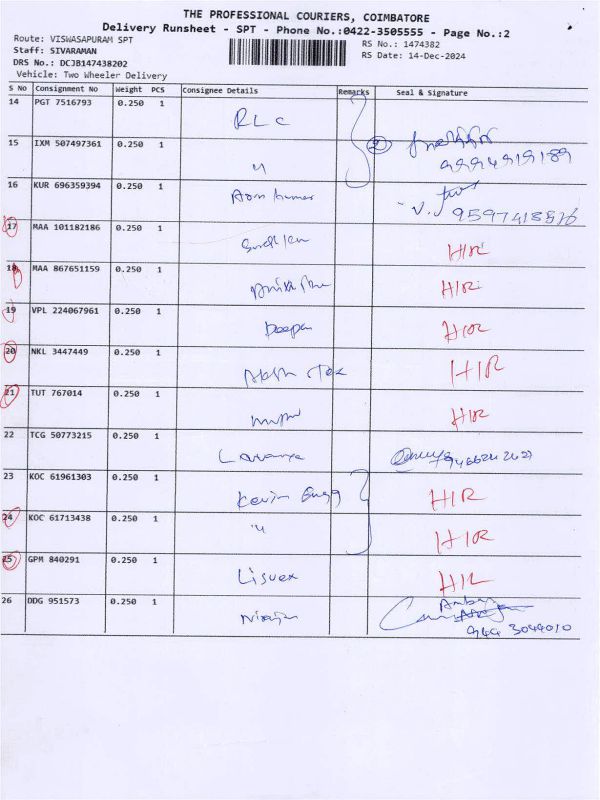 THE PROFESSIONAL COURIERS, COIMBATORE
Delivery Runsheet - SPT - Phone No.:0422-3505555 - Page No.:2
Route: VISWASAPURAM SPT
RS No.: 1474382
Staff: SIVARAMAN
RS Date: 14-Dec-2024
DRS No.: DCJB147438202
Vehicle: Two Wheeler Delivery
S No Consignment No Weight PCS Consignee Details Remarks Seal & Signature
14 PGT 7516793 0.250 1 RLC
15 IXM 507497361 0.250 1 " 2
9994919189
16 KUR 696359394 0.250 1
17 MAA 101182186 0.250 1 H/R
18 MAA 867651159 0.250 1 H/R
19 VPL 224067961 0.250 1 Deepa H/R
20 NKL 3447449 0.250 1 H/R
21 TUT 767014 0.250 1 H/R
22 TCG 50773215 0.250 1 Lavanya
23 KOC 61961303 0.250 1 Kevin Engg H/R
24 KOC 61713438 0.250 1 " H/R
25 GPM 840291 0.250 1 H/R
26 DDG 951573 0.250 1
944 3044010